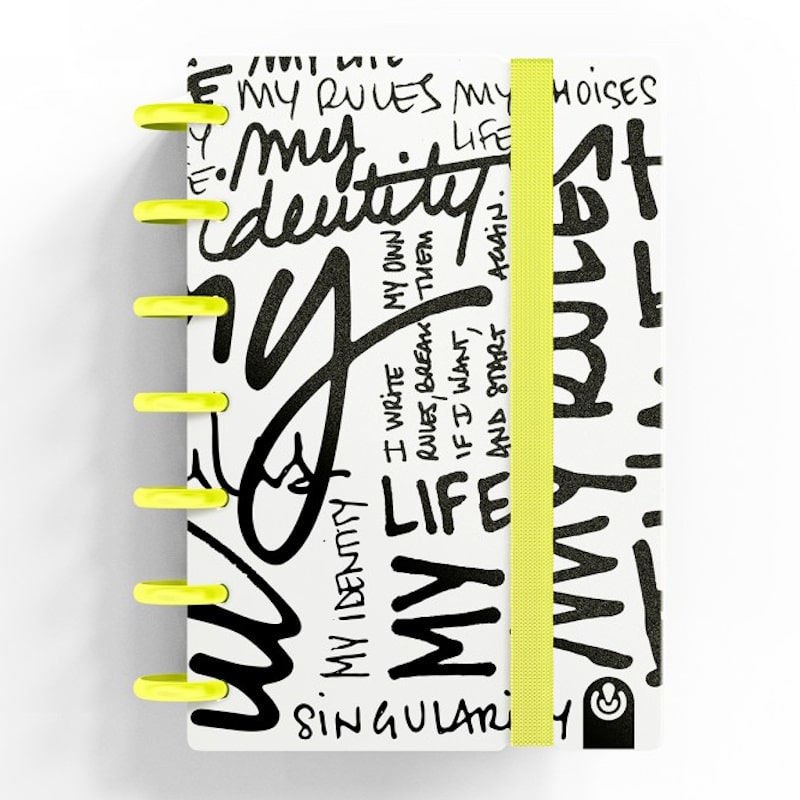 MY LIFE
MY RULES MY HOISES
LIFE
my
identity
my
I WRITE MY OWN
RULES, BREAK THEM
IF I WANT,
AND START AGAIN.
MY RULES
MY LIFE
MY IDENTITY
SINGULARITY